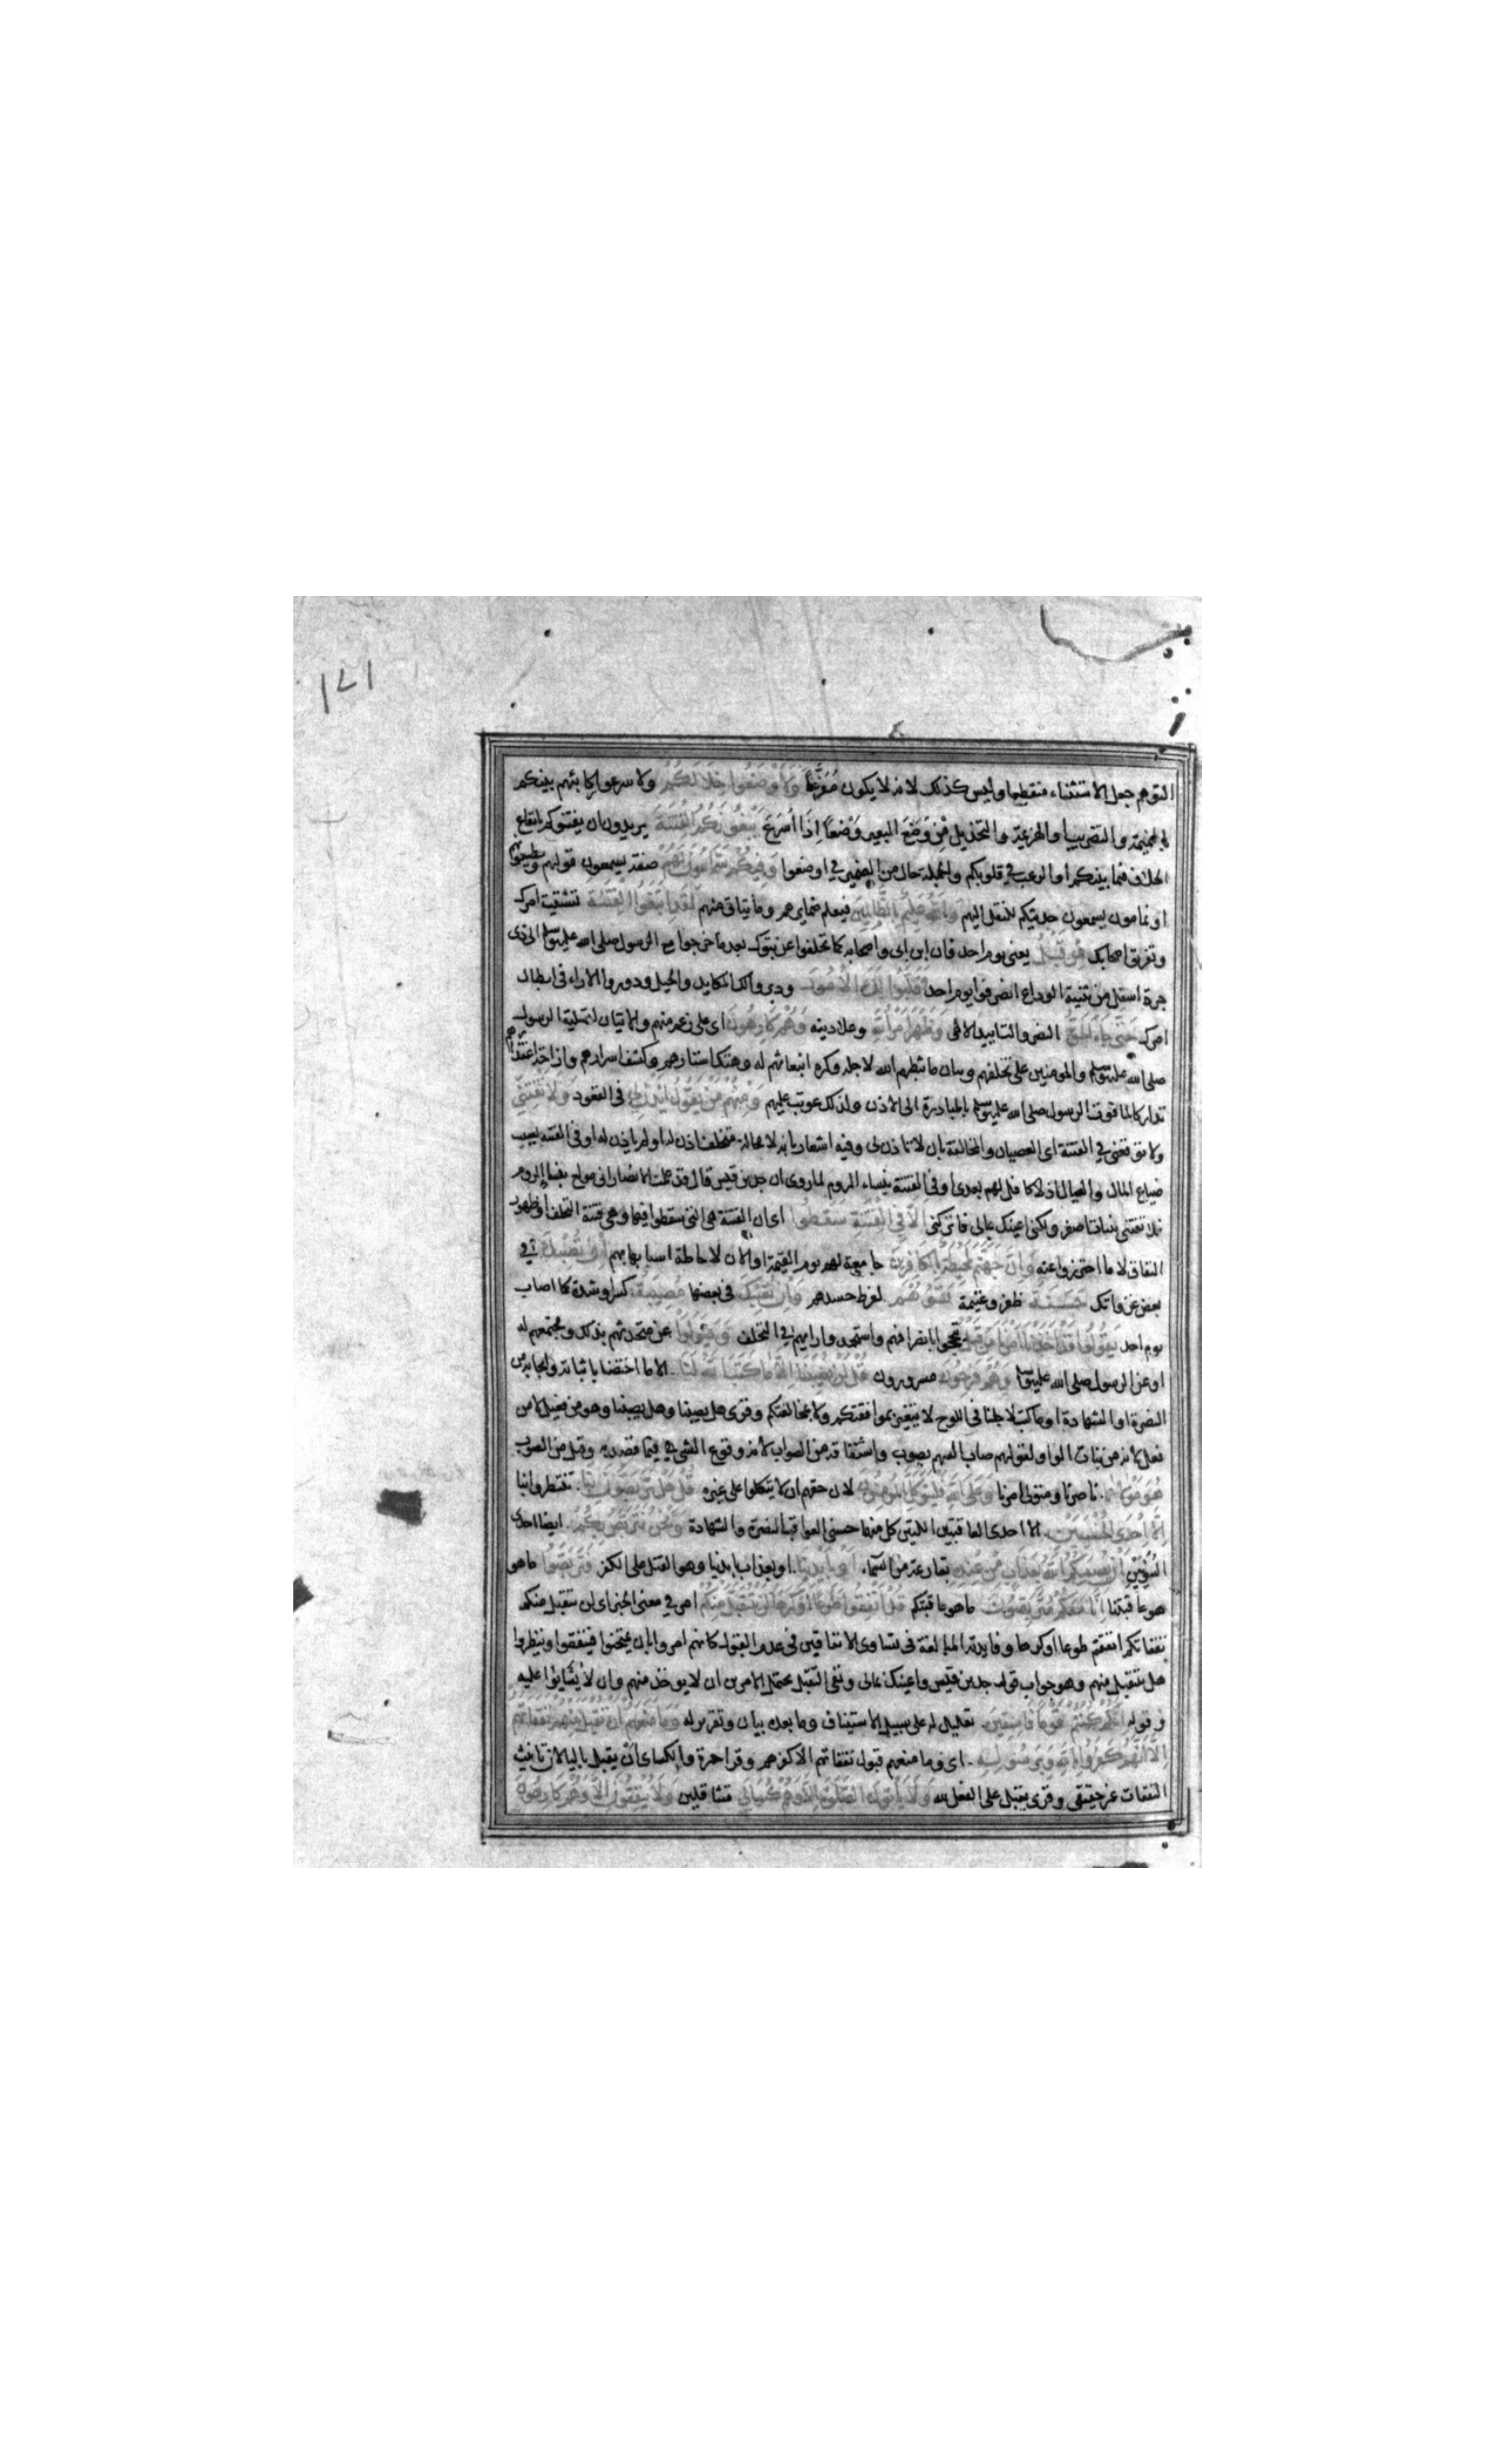 ١٧١
التوهم جعل الاستثناء منقطعا وليس كذلك لانه لا يكون مُفَرَّغاً وَلَأَوْضَعُوا خِلَالَكُمْ ولاسرعوا ركائبهم بينكم
بالنميمة والتضريب او الهزيمة والتخذيل مِنْ وَضَعَ البعير وَضْعاً اِذَا اَسْرَعَ يَبْغُونَكُمُ الْفِتْنَةَ يريدون ان يفتنوكم بايقاع
الخلاف فيما بينكم او الرعب في قلوبكم والجملة حال من الضمير في اوضعوا وَفِيكُمْ سَمَّاعُونَ لَهُمْ ضعفة يسمعون قولهم ويطيعونهم
او نمامون يسمعون حديثكم للنقل اليهم وَاللهُ عَلِيمٌ بِالظَّالِمِينَ فيعلم ضمايرهم وما يتاتى منهم لَقَدِ ابْتَغَوُا الْفِتْنَةَ تشتيت امرك
وتفريق اصحابك مِنْ قَبْلُ يعني يوم احد فان ابن ابي واصحابه كما تخلفوا عن تبوك بعد ما خرجوا مع الرسول صلى الله عليه وسلم الى ذي
جدة اسفل من ثنية الوداع انصرفوا يوم احد وَقَلَّبُوا لَكَ الْأُمُورَ ودبروا لك المكايد والحيل ودوروا الاراء في ابطال
امرك حَتَّى جَاءَ الْحَقُّ النصر والتاييد الالهي وَظَهَرَ أَمْرُ اللهِ وعلا دينه وَهُمْ كَارِهُونَ اى على رغم منهم والايتان لتسلية الرسول
صلى الله عليه وسلم والمومنين على تخلفهم وبيان ما ثبطهم الله لاجله وكره انبعاثهم له وهتك استارهم وكشف اسرارهم وازاحة اعتذارهم
تداركا لما فوت الرسول صلى الله عليه وسلم بالمبادرة الى الاذن ولذلك عوتب عليهم وَمِنْهُمْ مَنْ يَقُولُ ائْذَنْ لِي في القعود وَلَا تَفْتِنِّي
ولا توقعني في الفتنة اى العصيان والمخالفة بان لا تاذن لي وفيه اشعار بانه لا محالة متخلف اذن له او لم ياذن له او في الفتنة بسبب
ضياع المال والعيال اذ لا كافل لهم بعدى او في الفتنة بنساء الروم لما روى ان جد بن قيس قال قد علمت الانصار اني مولع بنساء الروم
فلا تفتني ببنات اصفر ولكني اعينك بمالي فاتركني أَلَا فِي الْفِتْنَةِ سَقَطُوا اى ان الفتنة هى التي سقطوا فيها وهى فتنة التخلف او ظهور
النفاق لا ما احترزوا عنه وَإِنَّ جَهَنَّمَ لَمُحِيطَةٌ بِالْكَافِرِينَ جامعة لهم يوم القيمة او الان لاحاطة اسبابها بهم إِنْ تُصِبْكَ في
بعض غزواتك حَسَنَةٌ ظفر وغنيمة تَسُؤْهُمْ لفرط حسدهم وَإِنْ تُصِبْكَ في بعضها مُصِيبَةٌ كسر او شدة كما اصاب
يوم احد يَقُولُوا قَدْ أَخَذْنَا أَمْرَنَا مِنْ قَبْلُ تبجحوا بانصرافهم واستحمدوا رايهم في التخلف وَيَتَوَلَّوْا عن متحدثهم بذلك ومجتمعهم له
او عن الرسول صلى الله عليه وسلم وَهُمْ فَرِحُونَ مسرورون قُلْ لَنْ يُصِيبَنَا إِلَّا مَا كَتَبَ اللهُ لَنَا الا ما اختصنا باثباته وايجابه من
النصرة او الشهادة او ما كتب لاجلنا في اللوح لا يتغير بموافقتكم ولا بمخالفتكم وقرى هل يصيبنا وهل يصيبنا وهو من فيعل لا من
فعل لانه من بنات الواو لقولهم صاب السهم يصوب واشتقاقه من الصواب لانه وقوع الشي فيما قصد به وقيل من الصوب
هُوَ مَوْلَانَا ناصرنا ومتولى امرنا وَعَلَى اللهِ فَلْيَتَوَكَّلِ الْمُؤْمِنُونَ لان حقهم ان لا يتوكلوا على غيره قُلْ هَلْ تَرَبَّصُونَ بِنَا تنتظرون بنا
إِلَّا إِحْدَى الْحُسْنَيَيْنِ الا احدى العاقبتين اللتين كل منهما حسنى العواقب النصرة والشهادة وَنَحْنُ نَتَرَبَّصُ بِكُمْ ايضا احدى
السُّوئَيَيْنِ أَنْ يُصِيبَكُمُ اللهُ بِعَذَابٍ مِنْ عِنْدِهِ بقارعة من السماء أَوْ بِأَيْدِينَا او بعذاب بايدينا وهو القتل على الكفر فَتَرَبَّصُوا ما هو
هو عاقبتنا إِنَّا مَعَكُمْ مُتَرَبِّصُونَ ما هو عاقبتكم قُلْ أَنْفِقُوا طَوْعًا أَوْ كَرْهًا لَنْ يُتَقَبَّلَ مِنْكُمْ امر في معنى الخبر اى لن يتقبل منكم
نفقاتكم انفقتم طوعا او كرها وفايدته المبالغة في تساوى الانفاقين في عدم القبول كانهم امروا بان يمتحنوا فينفقوا وينظروا
هل يتقبل منهم وهو جواب قول جد بن قيس واعينك بمالى ونفى التقبل يحتمل الامرين ان لا يوخذ منهم وان لا يُثَابُوا عليه
وقوله إِنَّكُمْ كُنْتُمْ قَوْمًا فَاسِقِينَ تعليل له على سبيل الاستيناف وما بعده بيان وتقرير له وَمَا مَنَعَهُمْ أَنْ تُقْبَلَ مِنْهُمْ نَفَقَاتُهُمْ
إِلَّا أَنَّهُمْ كَفَرُوا بِاللهِ وَبِرَسُولِهِ اى وما منعهم قبول نفقاتهم الا كفرهم وقرا حمزة والكساى أَنْ يقبل باليا لان تانيث
النفقات غير حقيقى وقرى يقبل على الفعل لله وَلَا يَأْتُونَ الصَّلٰوةَ إِلَّا وَهُمْ كُسَالَى متثاقلين وَلَا يُنْفِقُونَ إِلَّا وَهُمْ كَارِهُونَ